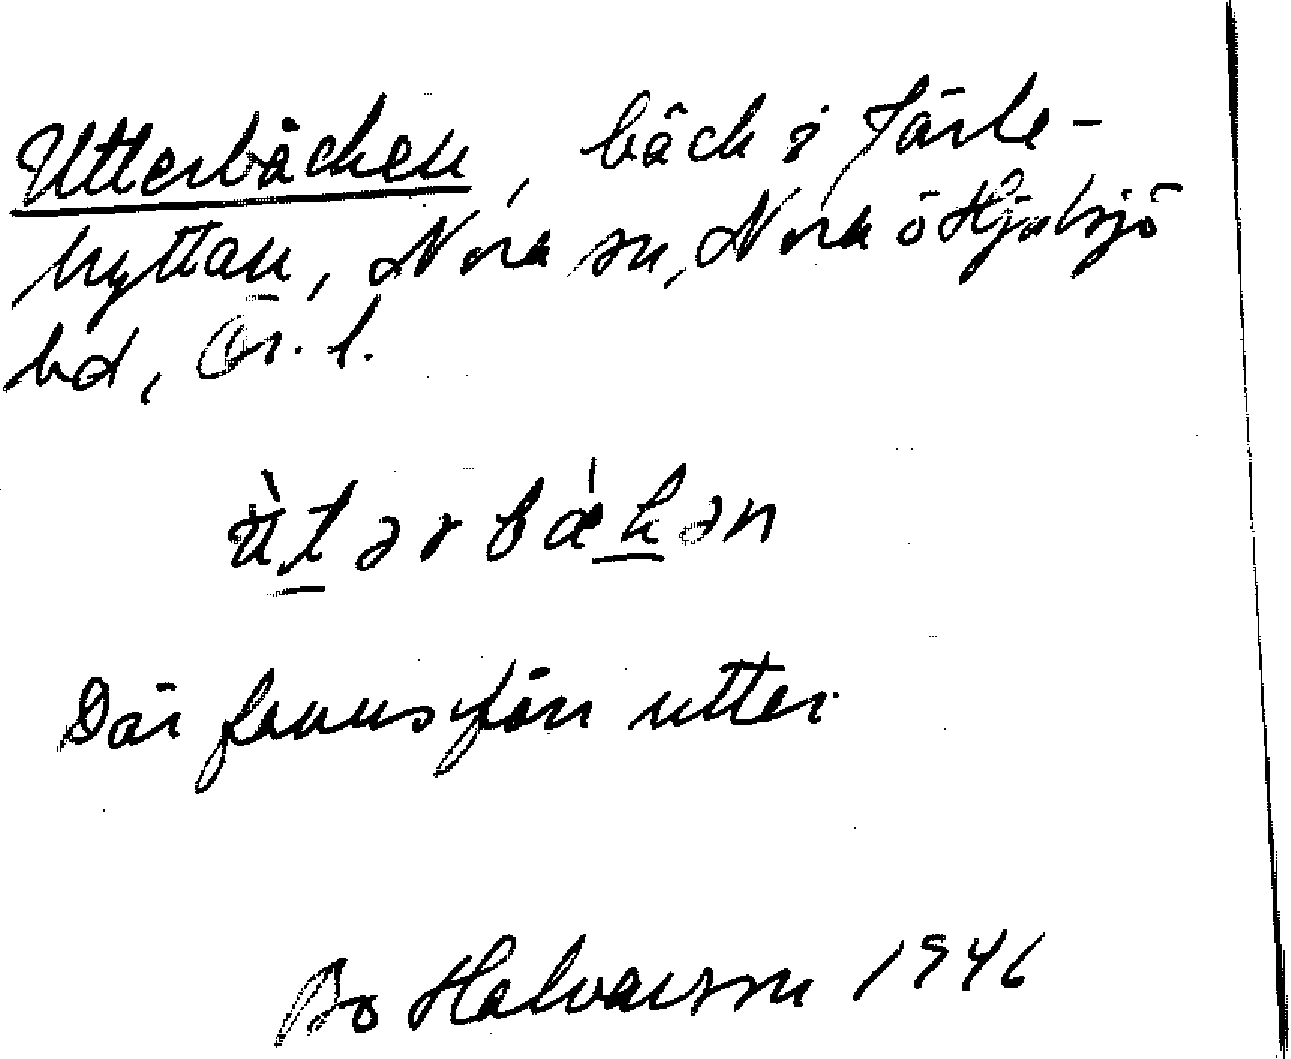 Utterbäcken, bäck i Järle-
hyttan, Nora sn, Nora o Hjulsjö
bd, Ör. l.
ùtərbä̀kən
Där fanns förr utter.
Bo Halvarsson 1946